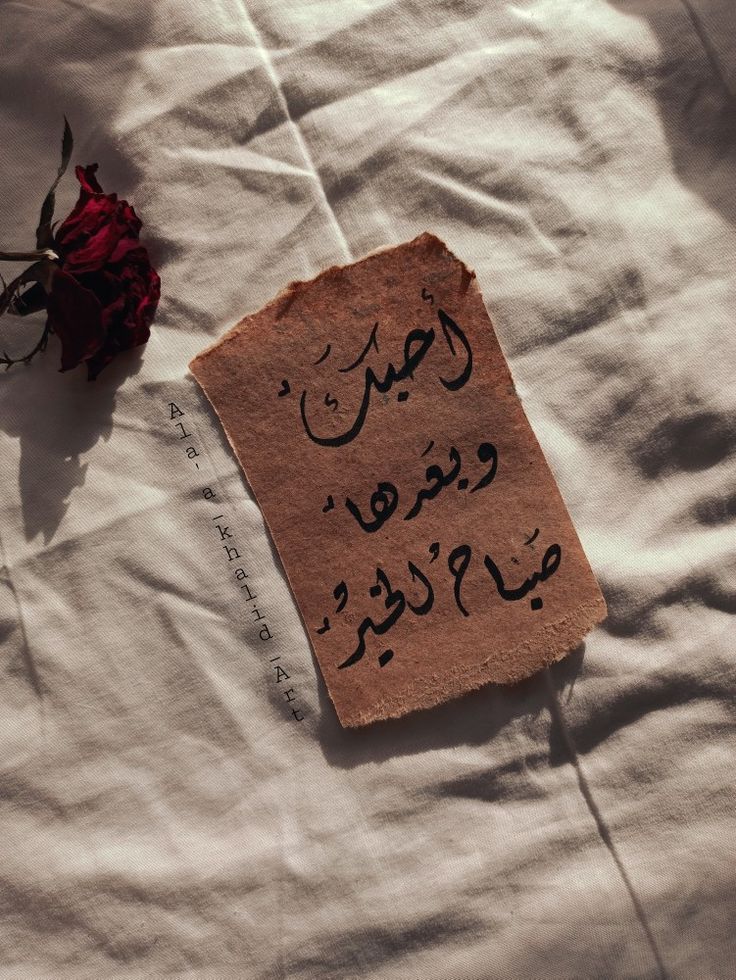 أحبكَ
وبعَدها
صَباحُ الخيرُ
Ala'a_khalid_Art